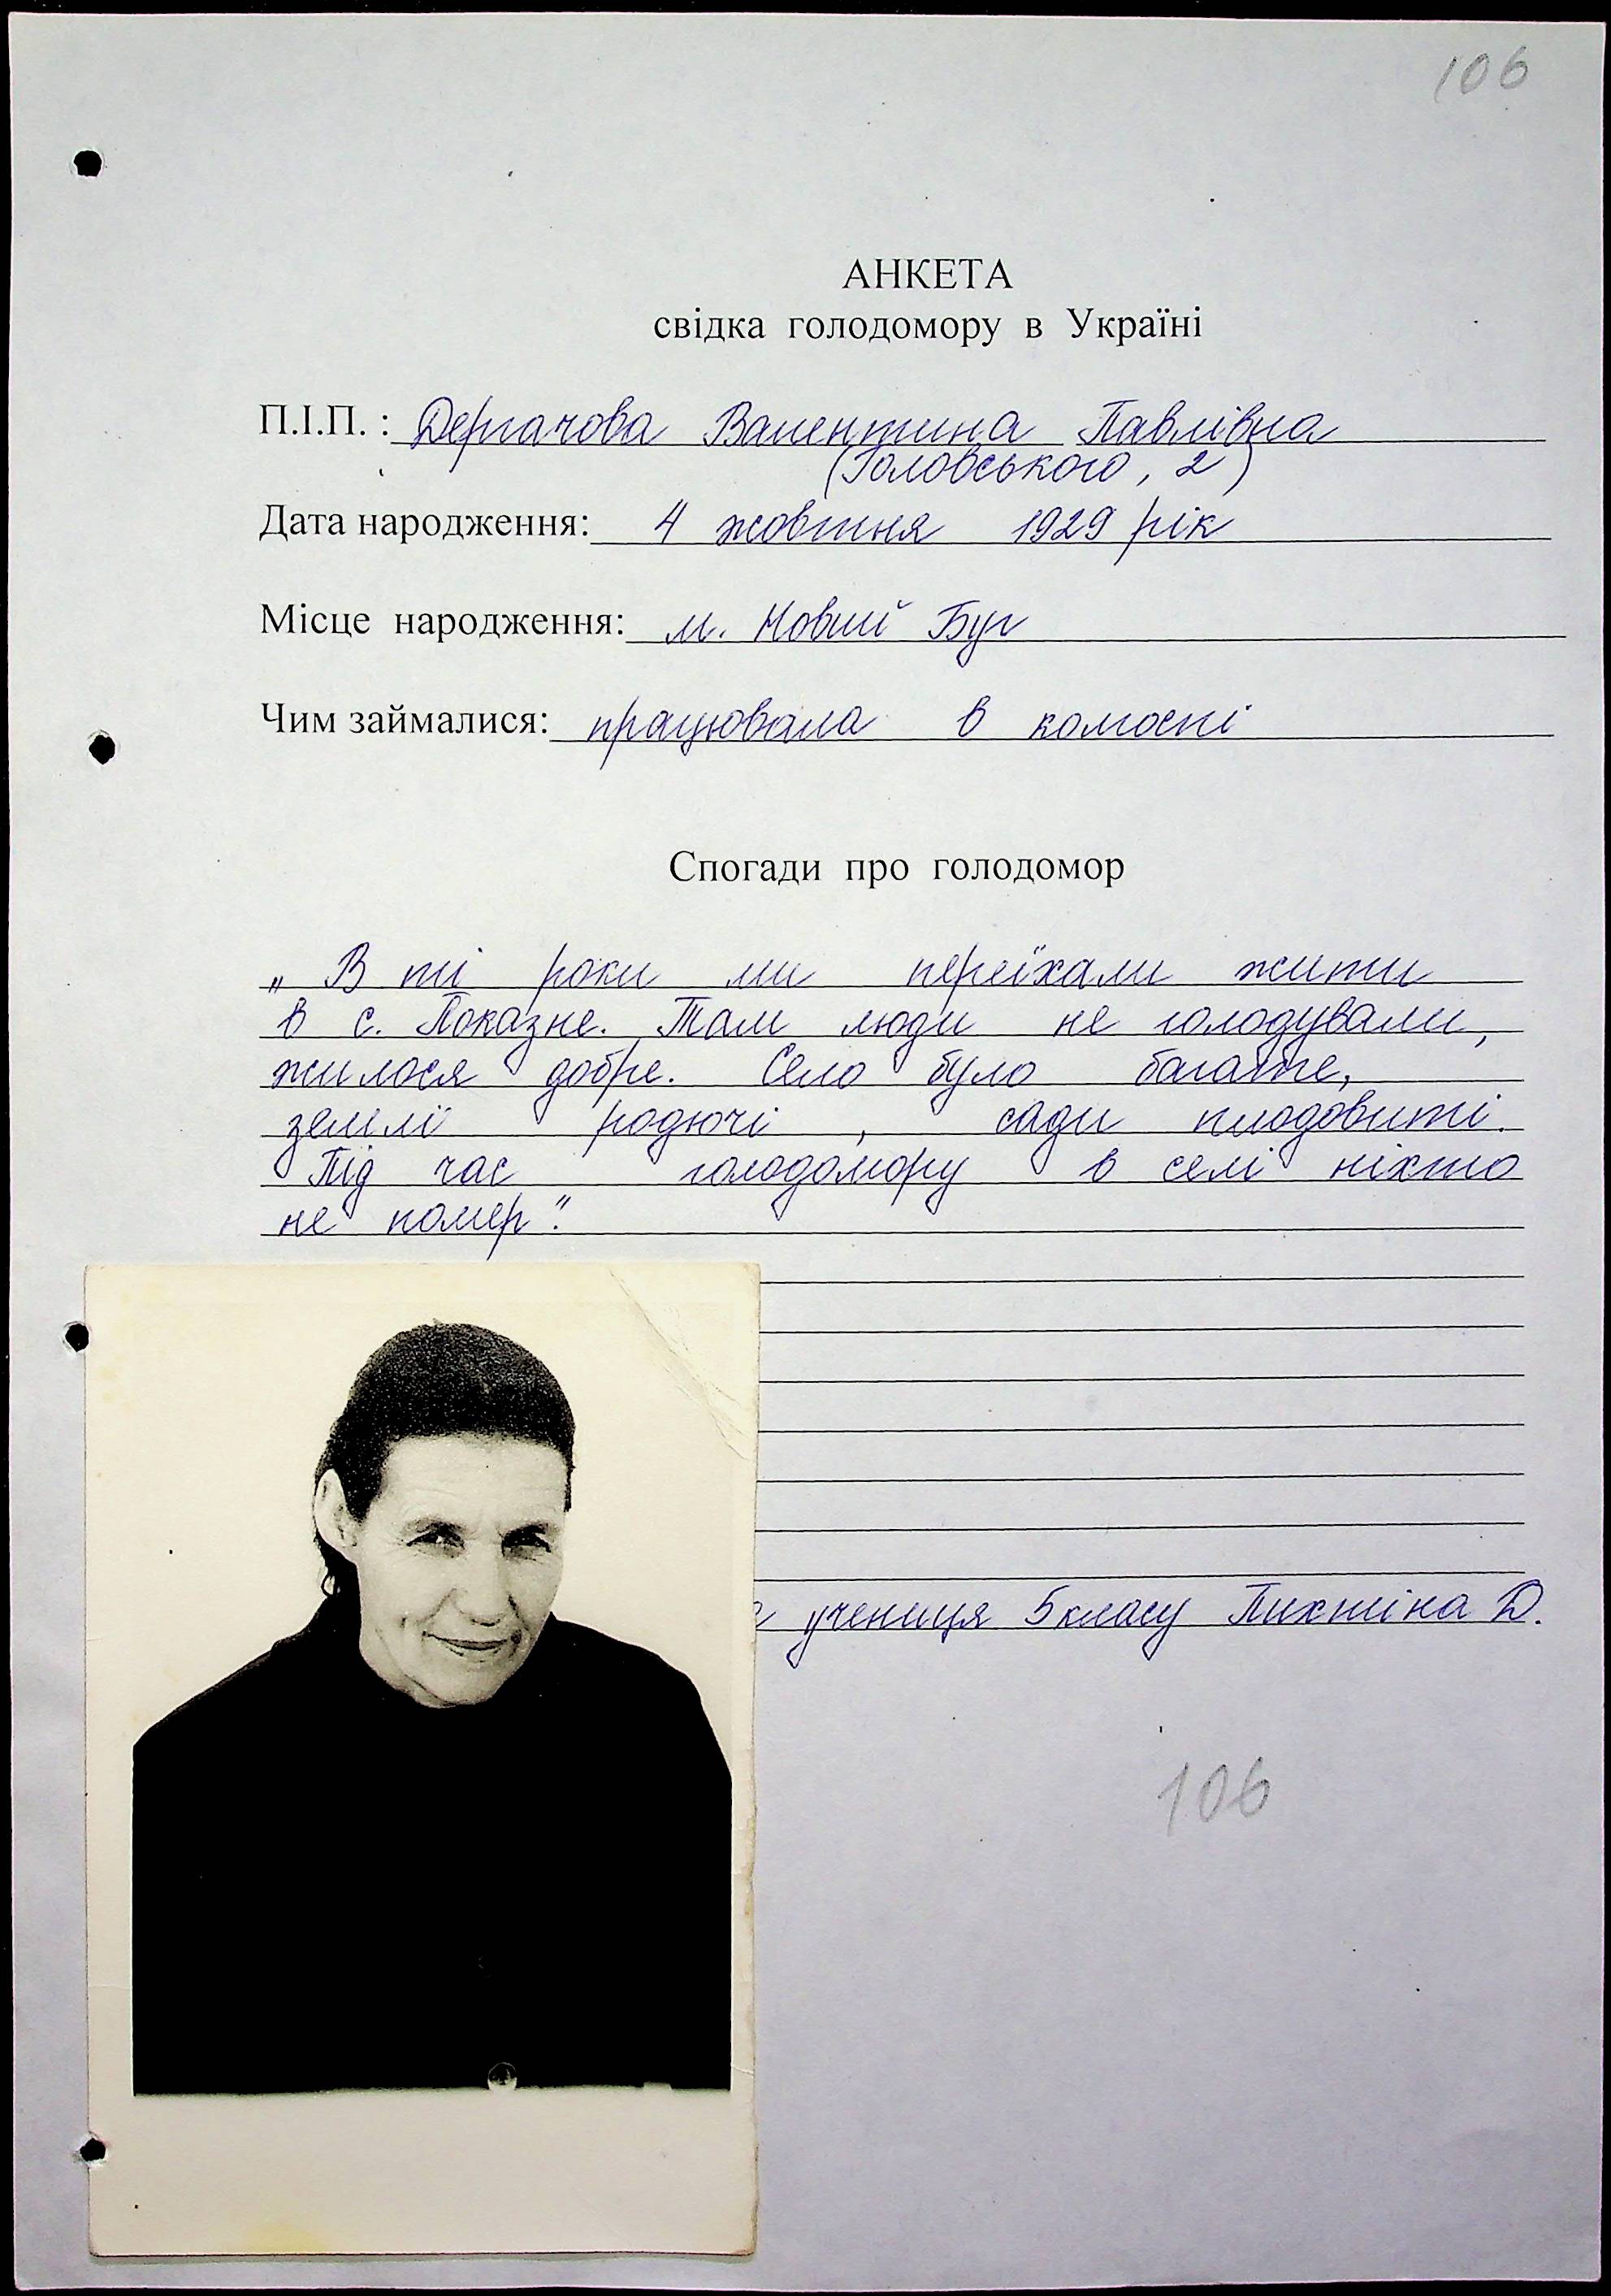 106
АНКЕТА
свідка голодомору в Україні
П.І.П. : Дергачова Валентина Павлівна
(Головського, 2)
Дата народження: 4 жовтня 1929 рік
Місце народження: м. Новий Буг
Чим займалися: працювала в колгоспі
Спогади про голодомор
„ В ті роки ми переїхали жити
в с. Показне. Там люди не голодували,
жилося добре. Село було багате,
землі родючі , сади плодовиті.
Під час голодомору в селі ніхто
не помер".
учениця 5 класу Пихтіна Д.
106